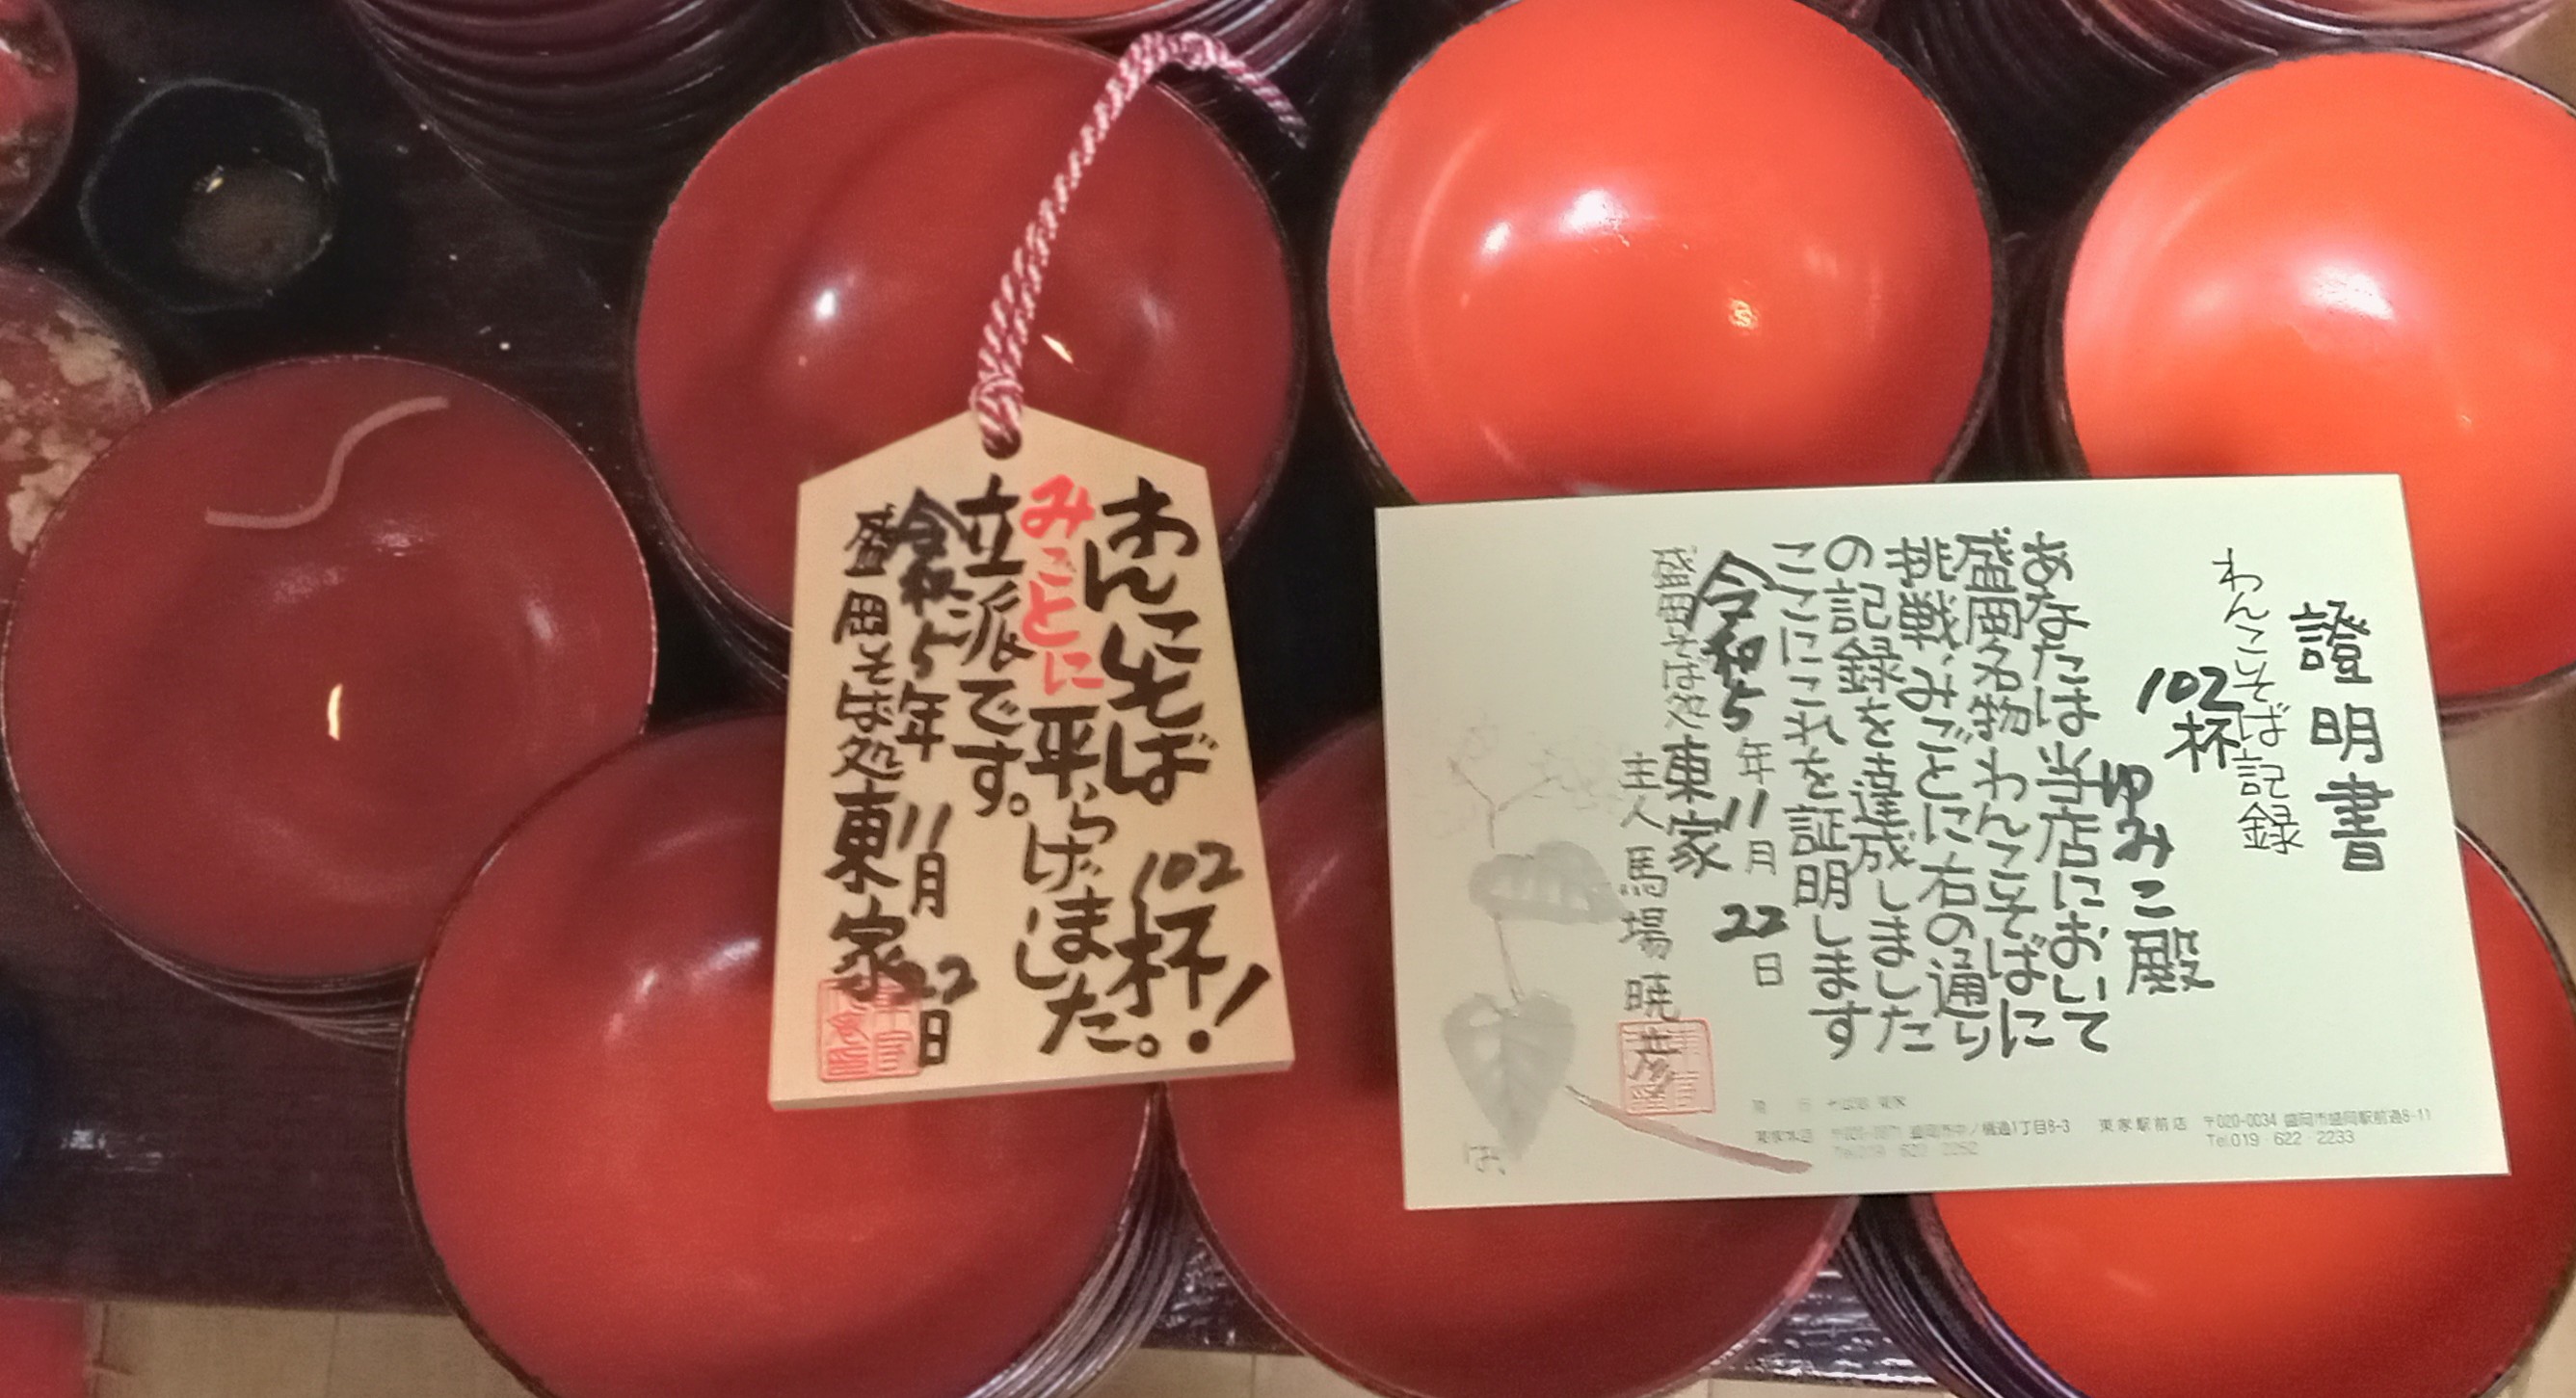 わんこそば 102杯!
みごとに平らげました。
立派です。
令和5年11月22日
盛岡そば処 東家
證明書
わんこそば記録
102杯
ゆみこ殿
あなたは当店において
盛岡名物わんこそばに
挑戦、みごとに右の通り
の記録を達成しました
ここにこれを証明します
令和5年11月22日
盛岡そば処 東家
主人 馬場暁彦
東家本店 盛岡市中ノ橋通1丁目8-3 東家駅前店 〒020-0034 盛岡市盛岡駅前通8-11
Tel.019-622-2252 Tel.019-622-2233